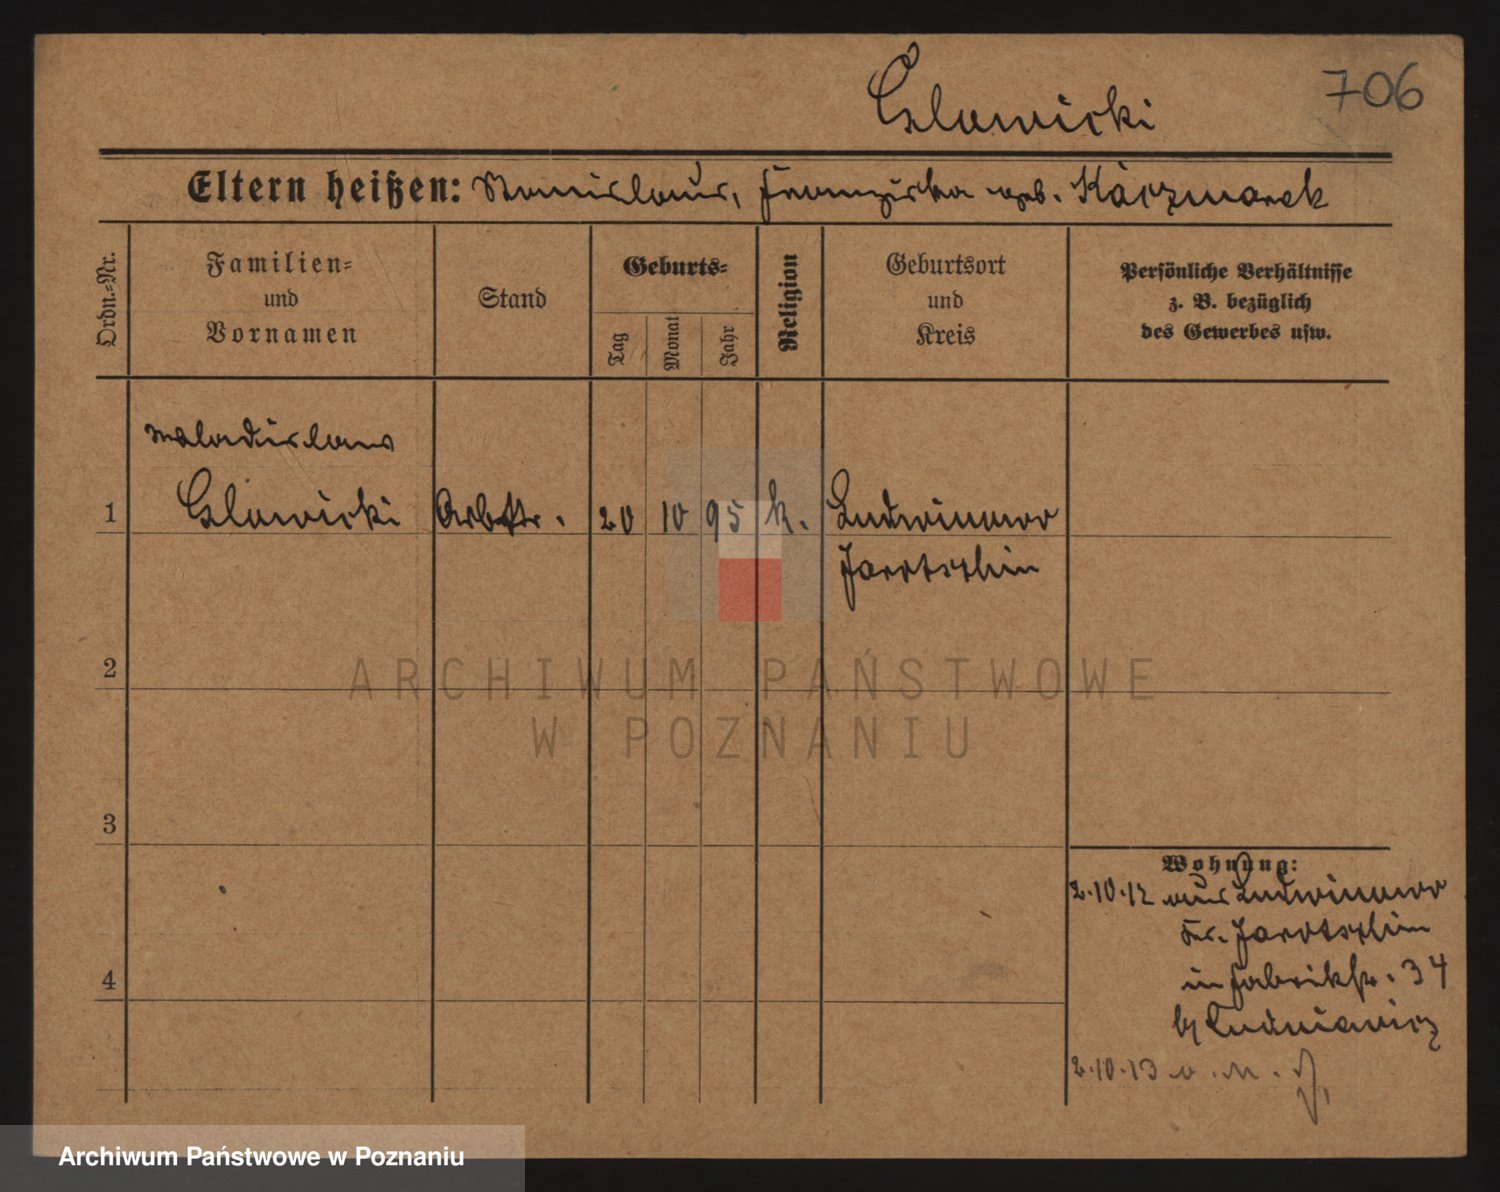 706
Eltern heißen: Stanislaus, Franziska geb. Kaczmarek
Ordn.-Nr.
Familien-
und
Vornamen
Stand
Geburts-
Tag
Monat
Jahr
Religion
Geburtsort
und
Kreis
Persönliche Verhältnisse
z. B. bezüglich
des Gewerbes usw.
Wladislaus
1
20 10 95 k.
Ludwinowo
Jarotschin
2
3
4
Wohnung:
2.10.12 aus Ludwinowo
Kr. Jarotschin
in Fabrikstr. 34
by
2.10.13
ARCHIWUM PAŃSTWOWE
W POZNANIU
Archiwum Państwowe w Poznaniu